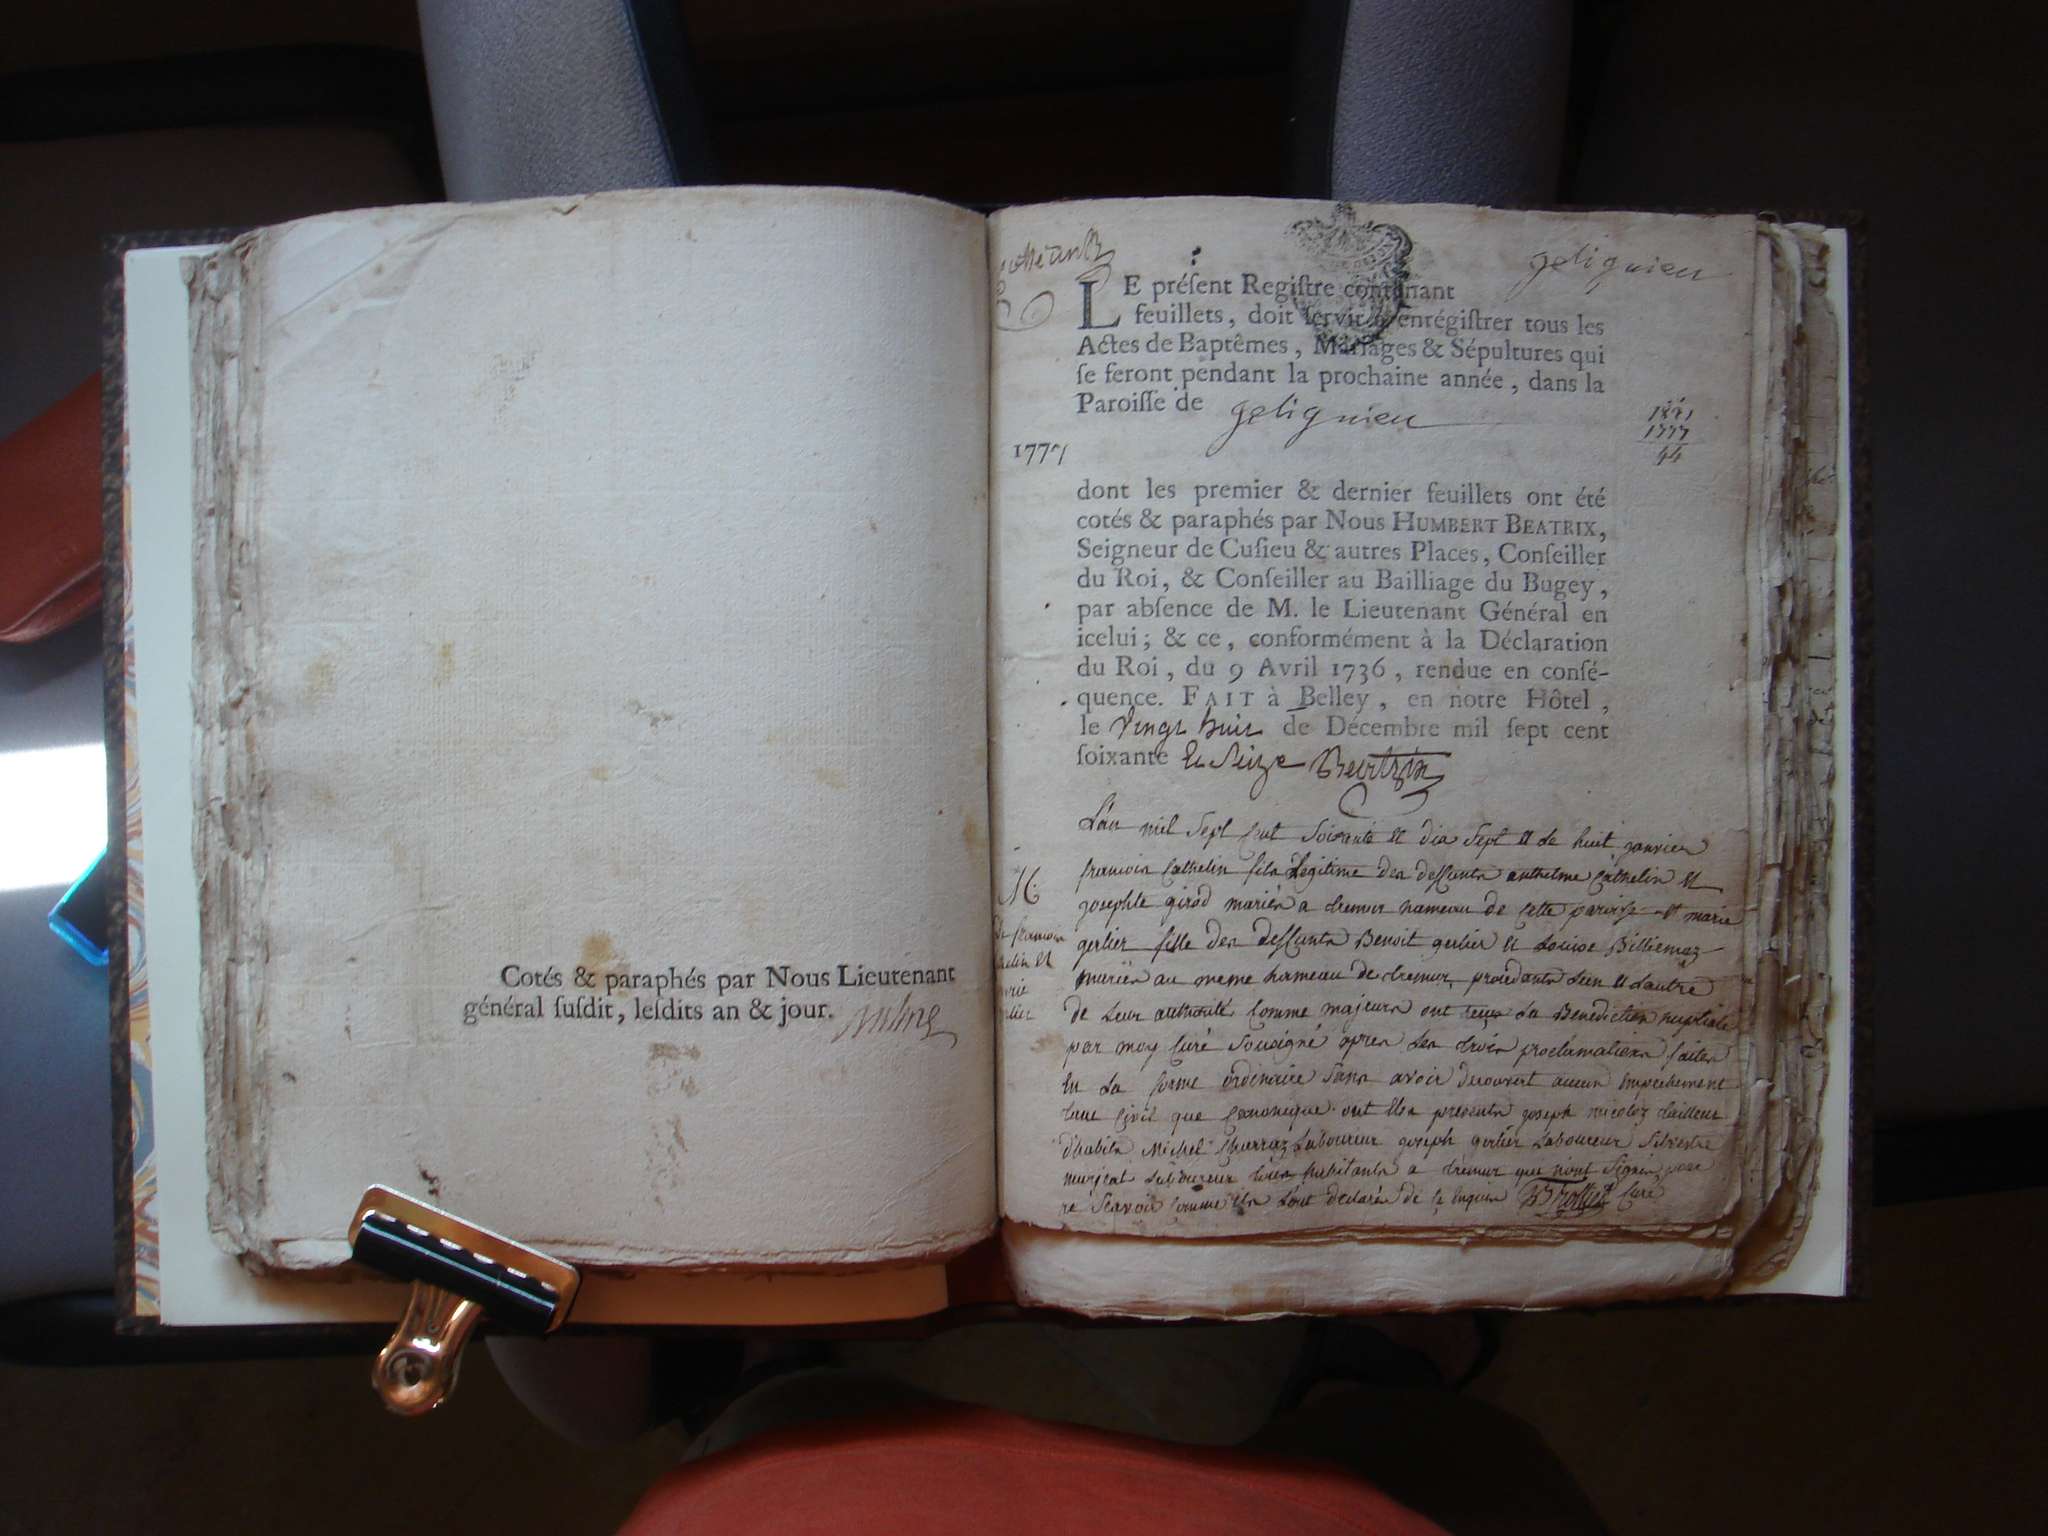 Cotés & paraphés par Nous Lieutenant
général ſuſdit, leſdits an & jour.
gelignieu
LE préſent Regiſtre contenant
feuillets, doit ſervir à enrégiſtrer tous les
Actes de Baptêmes, Mariages & Sépultures qui
ſe feront pendant la prochaine année, dans la
Paroiſſe de gelignieu
1821
1777
44
1777
dont les premier & dernier feuillets ont été
cotés & paraphés par Nous HUMBERT BEATRIX,
Seigneur de Cuſieu & autres Places, Conſeiller
du Roi, & Conſeiller au Bailliage du Bugey,
par abſence de M. le Lieutenant Général en
icelui; & ce, conformément à la Déclaration
du Roi, du 9 Avril 1736, rendue en conſé-
quence. FAIT à Belley, en notre Hôtel,
le vingt huit de Décembre mil ſept cent
ſoixante et seize Beatrix
L'an mil sept cent soixante et dix sept et le huit janvier
francois Cathelin fils Légitime des deffunts anthelme Cathelin et
josephte girod mariés a hameau de cette paroisse et marie
gerlier fille des deffunts Benoit gerlier et Louise Billiemaz
mariés au meme hameau de procedants Lun et Lautre
de Leur authorité Comme majeurs ont reçu La Benediction nuptiale
par moy Curé Sousigné apres Les trois proclamations faites
En La forme ordinaire Sans avoir decouvert aucun Empechement
tant Civil que Canonique ont Etes presents joseph nicoloz tailleur
d'habits Michel Charraz Laboureur joseph gerlier Laboureur Silvestre
Laboureur tous habitants a que n'ont Signés pour
ne Scavoir Comme ils L'ont declarés de ce Enquis Curé
M.
de francois